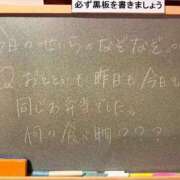 必ず黒板を書きましょう
今日のせいらのなぞなぞ。
Q おとといも昨日も今日も
同じお弁当でした。
何の食べ物???